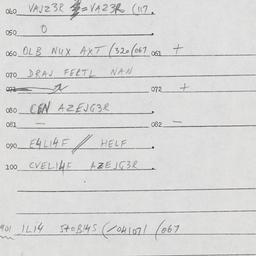 040 VAJZ3R = VAZ3R (117.
050 0
060 DLB NUX AXT (320/067 061 +
070 DRAJ FERTL NAN
071 072 +
080 CEN AZEJG3R
081 – 082 –
090 E4LI4F // HELF
100 CVELI4F AZEJG3R
901 ILI4 STOBI4S (/041071 (067